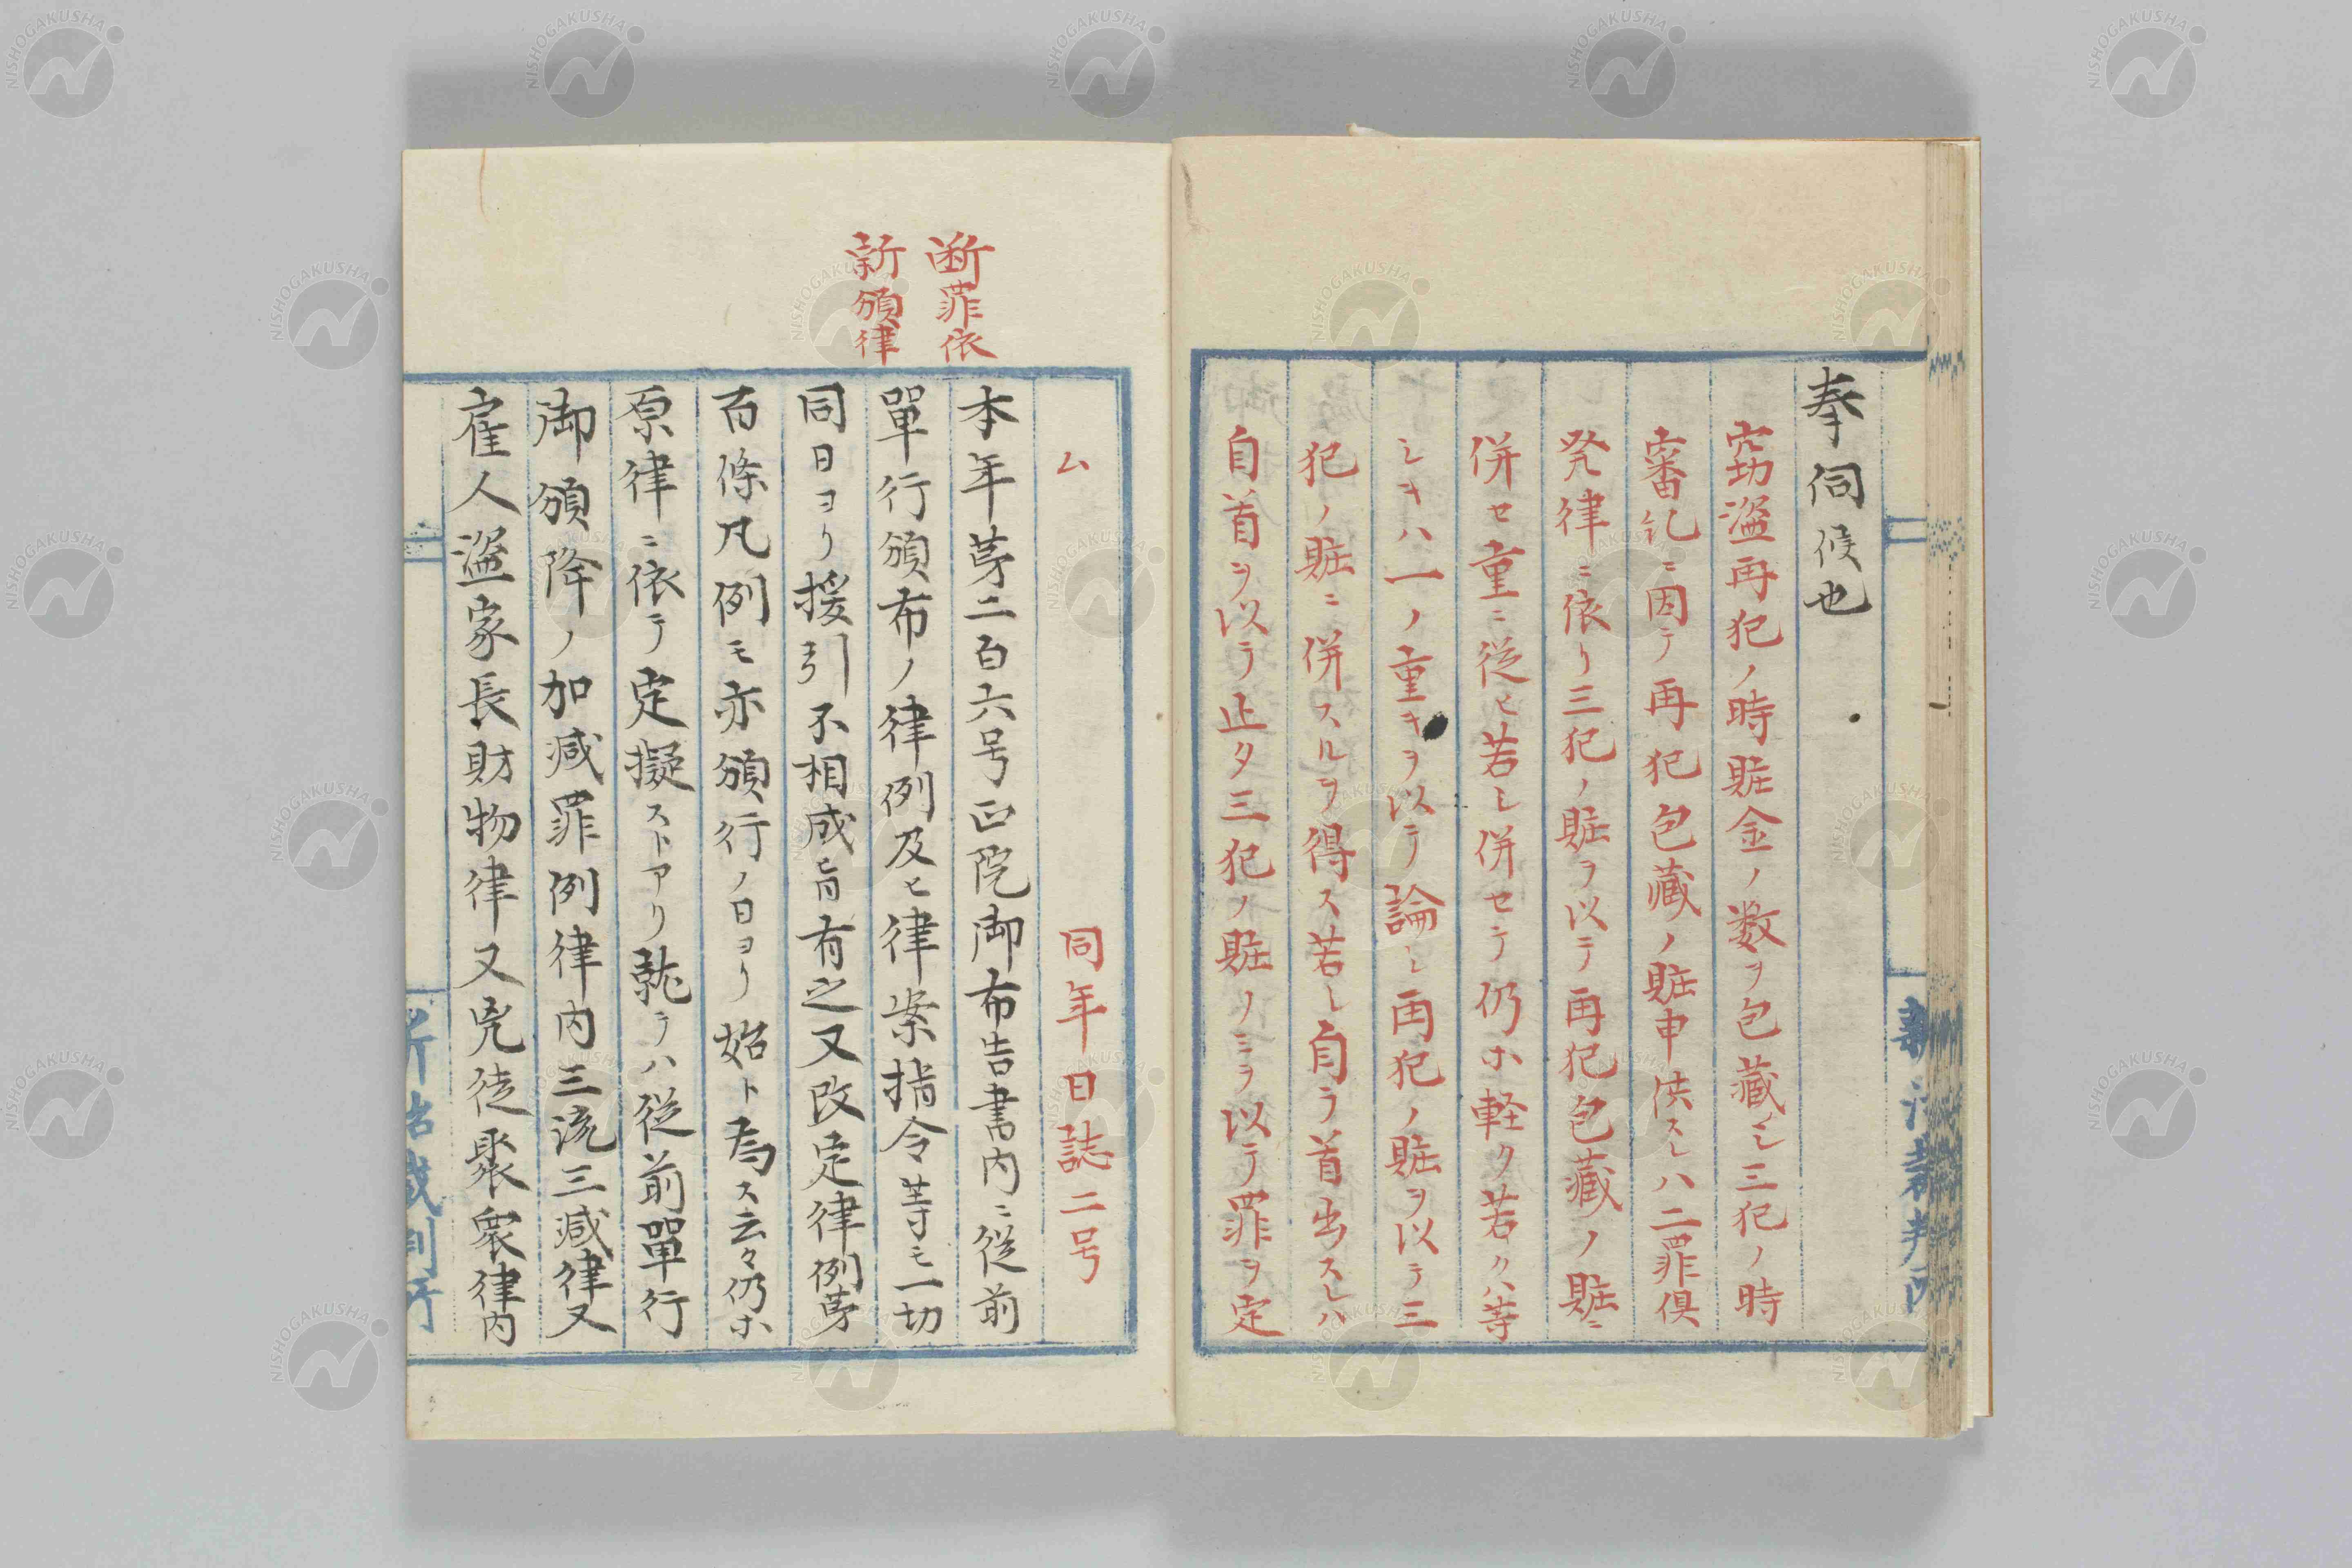 奉伺候也
窃盗再犯ノ時賍金ノ数ヲ包藏シ三犯ノ時
審訊ニ因テ再犯包藏ノ賍申供スレハ二罪倶
発律ニ依リ三犯ノ賍ヲ以テ再犯包藏ノ賍ニ
併セ重ニ従ヒ若シ併セテ仍ホ軽ク若クハ等
シキハ一ノ重キヲ以テ論シ再犯ノ賍ヲ以テ三
犯ノ賍ニ併スルヲ得ス若シ自ラ首出スレハ
自首ヲ以テ止タ三犯ノ賍ノミヲ以テ罪ヲ定
ム
同年日誌二号
断罪依
新頒律
本年苐二百六号正院御布告書内ニ従前
單行頒布ノ律例及ヒ律案指令等モ一切
同日ヨリ援引不相成旨有之又改定律例苐
百條凡例モ亦頒行ノ日ヨリ始ト為ス云々仍ホ
原律ニ依テ定擬ストアリ就テハ従前單行
御頒降ノ加减罪例律内三流三减律又
雇人盗家長財物律又兇徒聚衆律内
NISHOGAKUSHA